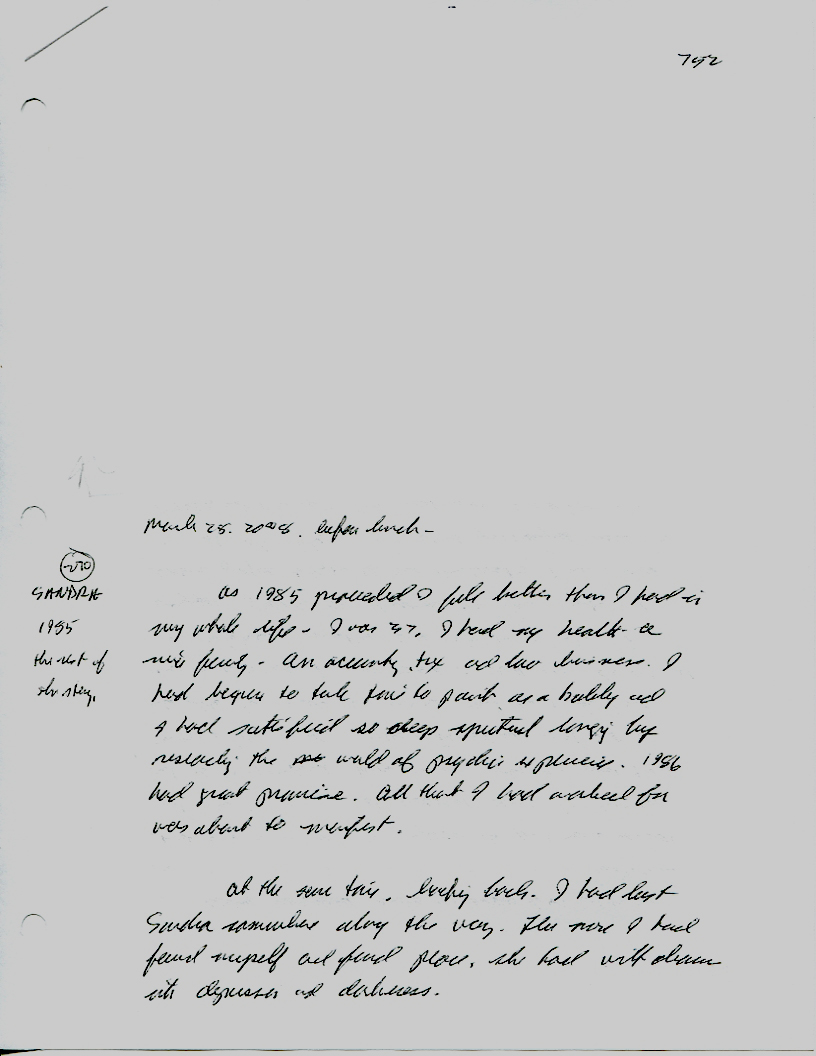 752
March 28. 2008. before lunch -
270
SANDRA
1985
the rest of
the story.
As 1985 proceeded I felt better than I had in
my whole life - I was 37, I had my health a
nice family - An accounting, tax and law business. I
had begun to take time to paint as a hobby and
I had satisfied so deep spiritual longing by
researching the world of psychic experiences. 1986
had great promise. All that I had worked for
was about to manifest.
At the same time, looking back. I had lost
Sandra somewhere along the way. The more I had
found myself and found peace, she had withdrawn
into depression and darkness.